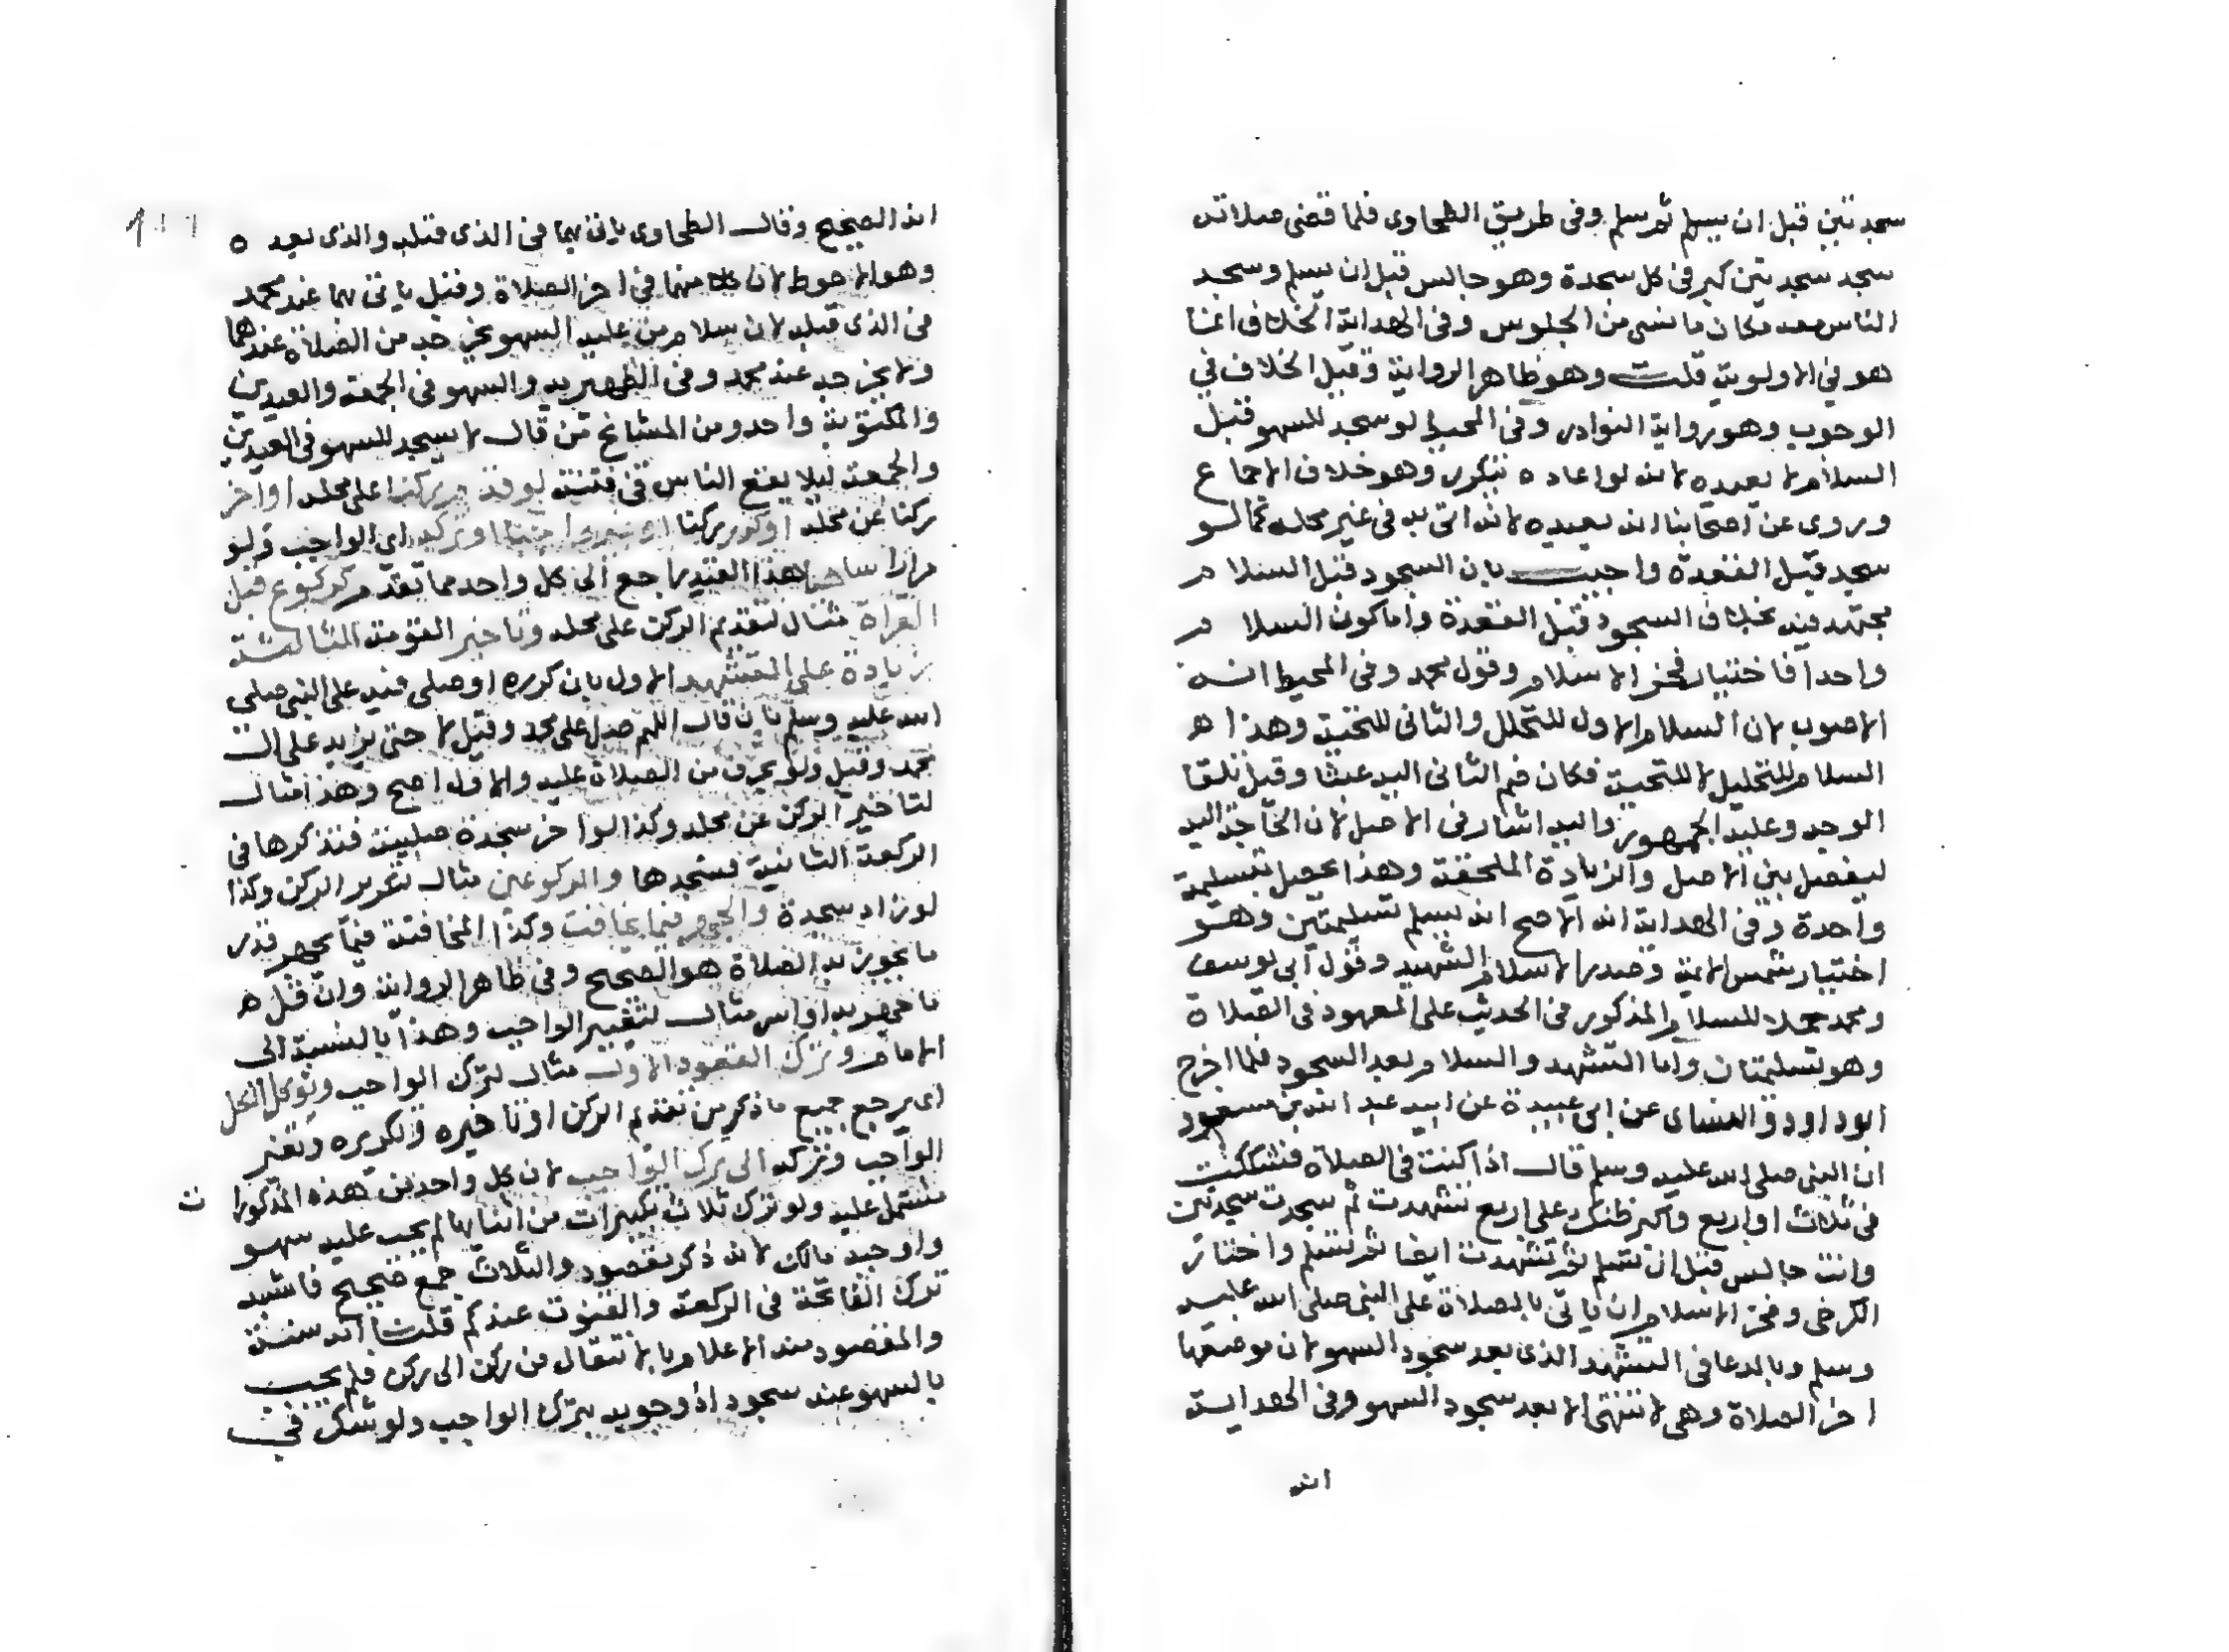 سجدتين قبل ان يسلم ثم سلم وفى طريق الطحاوى فلما قضى صلاته
سجد سجدتين كبر فى كل سجدة وهو جالس قبل ان يسلم وسجد
الناس معه مكان ما نسى من الجلوس وفى الهداية الخلاف انما
هو فى الاولوية قلت وهو ظاهر الرواية وقيل الخلاف فى
الوجوب وهو رواية النوادر وفى المحيط لو سجد للسهو قبل
السلام لا يعيده لانه لو اعاده تتكرر وهو خلاف الاجماع
وروى عن اصحابنا انه يعيده لانه اتى به فى غير محله كما لو
سجد قبل القعدة واجيب بان السجود قبل السلام
مجتهد فيه بخلاف السجود قبل القعدة واما كون السلام
واحدا فاختيار فخر الاسلام وقول محمد وفى المحيط انه
الاصوب لان السلام الاول للتحلل والثانى للتحية وهذا
السلام للتحليل لا للتحية فكان ضم الثانى اليه عبثا وقيل تلقا
الوجه وعليه الجمهور واليه اشار فى الاصل لان الحاجة اليه
ليفصل بين الاصل والزيادة الملحقة وهذا يحصل بتسليمة
واحدة وفى الهداية انه الاصح انه يسلم تسليمتين وهو
اختيار شمس الايمة وصدر الاسلام الشهيد وقول ابى يوسف
ومحمد حملا للسلام المذكور فى الحديث على المعهود فى الصلاة
وهو تسليمتان واما التشهد والسلام بعد السجود فلما اخرج
ابو داود والنساى عن ابى عبيدة عن ابيه عبد الله بن مسعود
ان النبى صلى الله عليه وسلم قال اذا كنت فى الصلاة فشككت
فى ثلاث او اربع واكبر ظنك على اربع تشهدت ثم سجدت سجدتين
وانت جالس قبل ان تسلم ثم تشهدت ايضا ثم تسلم واختار
الكرخى وفخر الاسلام ان ياتى بالصلاة على النبى صلى الله عليه
وسلم وبالدعا فى التشهد الذى بعد سجود السهو لان موضعها
اخر الصلاة وهى لا تنتهى الا بعد سجود السهو وفى الهداية
انه
انه الصحيح وقال الطحاوى ياتى بهما فى الذى قبله والذى بعده
وهو الاحوط لان كلا منهما فى اخر الصلاة وقيل ياتى بهما عند محمد
فى الذى قبله لان سلام من عليه السهو يخرجه من الصلاة عندهما
ولا يخرجه عند محمد وفى الظهيرية والسهو فى الجمعة والعيدين
والمكتوبة واحد ومن المشايخ من قال لا يسجد للسهو فى العيدين
والجمعة ليلا يقع الناس فى فتنة لو قدم ركنا على محله او اخر
ركنا عن محله او كرر ركنا او غير واجبا او تركه اى الواجب ولو
مرارا ساهيا هذا القيد راجع الى كل واحد مما تقدم كركوع قبل
القراة مثال لتقديم الركن على محله وتاخير القومة الثالثة
بزيادة على التشهد الاول بان كرره او صلى فيه على النبى صلى
الله عليه وسلم بان قال اللهم صل على محمد وقيل لا حتى يزيد على ال
محمد وقيل ولو بحرف من الصلاة عليه والاول اصح وهذا مثال
لتاخير الركن عن محله وكذا لو اخر سجدة صلبية فتذكرها فى
الركعة الثانية فسجدها والركوعين مثال لتكرير الركن وكذا
لو زاد سجدة والجهر فيما يخافت وكذا المخافتة فيما يجهر قدر
ما تجوز به الصلاة هو الصحيح وفى ظاهر الرواية وان قل
ما جهر به او اسر مثال لتغيير الواجب وهذا بالنسبة الى
الامام وترك القعود الاول مثال لترك الواجب الكل
اى يرجع جميع ما ذكر من تقديم الركن او تاخيره وتكريره وتغير
الواجب وتركه الى ترك الواجب لان كل واحد من هذه المذكورات
تشتمل عليه ولو ترك ثلاث تكبيرات من اثنايها لم يجب عليه سهو
واوجبه مالك لانه ذكر مقصود والثلاث جمع صحيح فاشبه
ترك الفاتحة فى الركعة والقنوت عندكم قلنا انه سنة
والمقصود منه الاعلام بالانتقال من ركن الى ركن فلم يجب
بالسهو عنه سجود اذ وجوبه بترك الواجب ولو شك فى